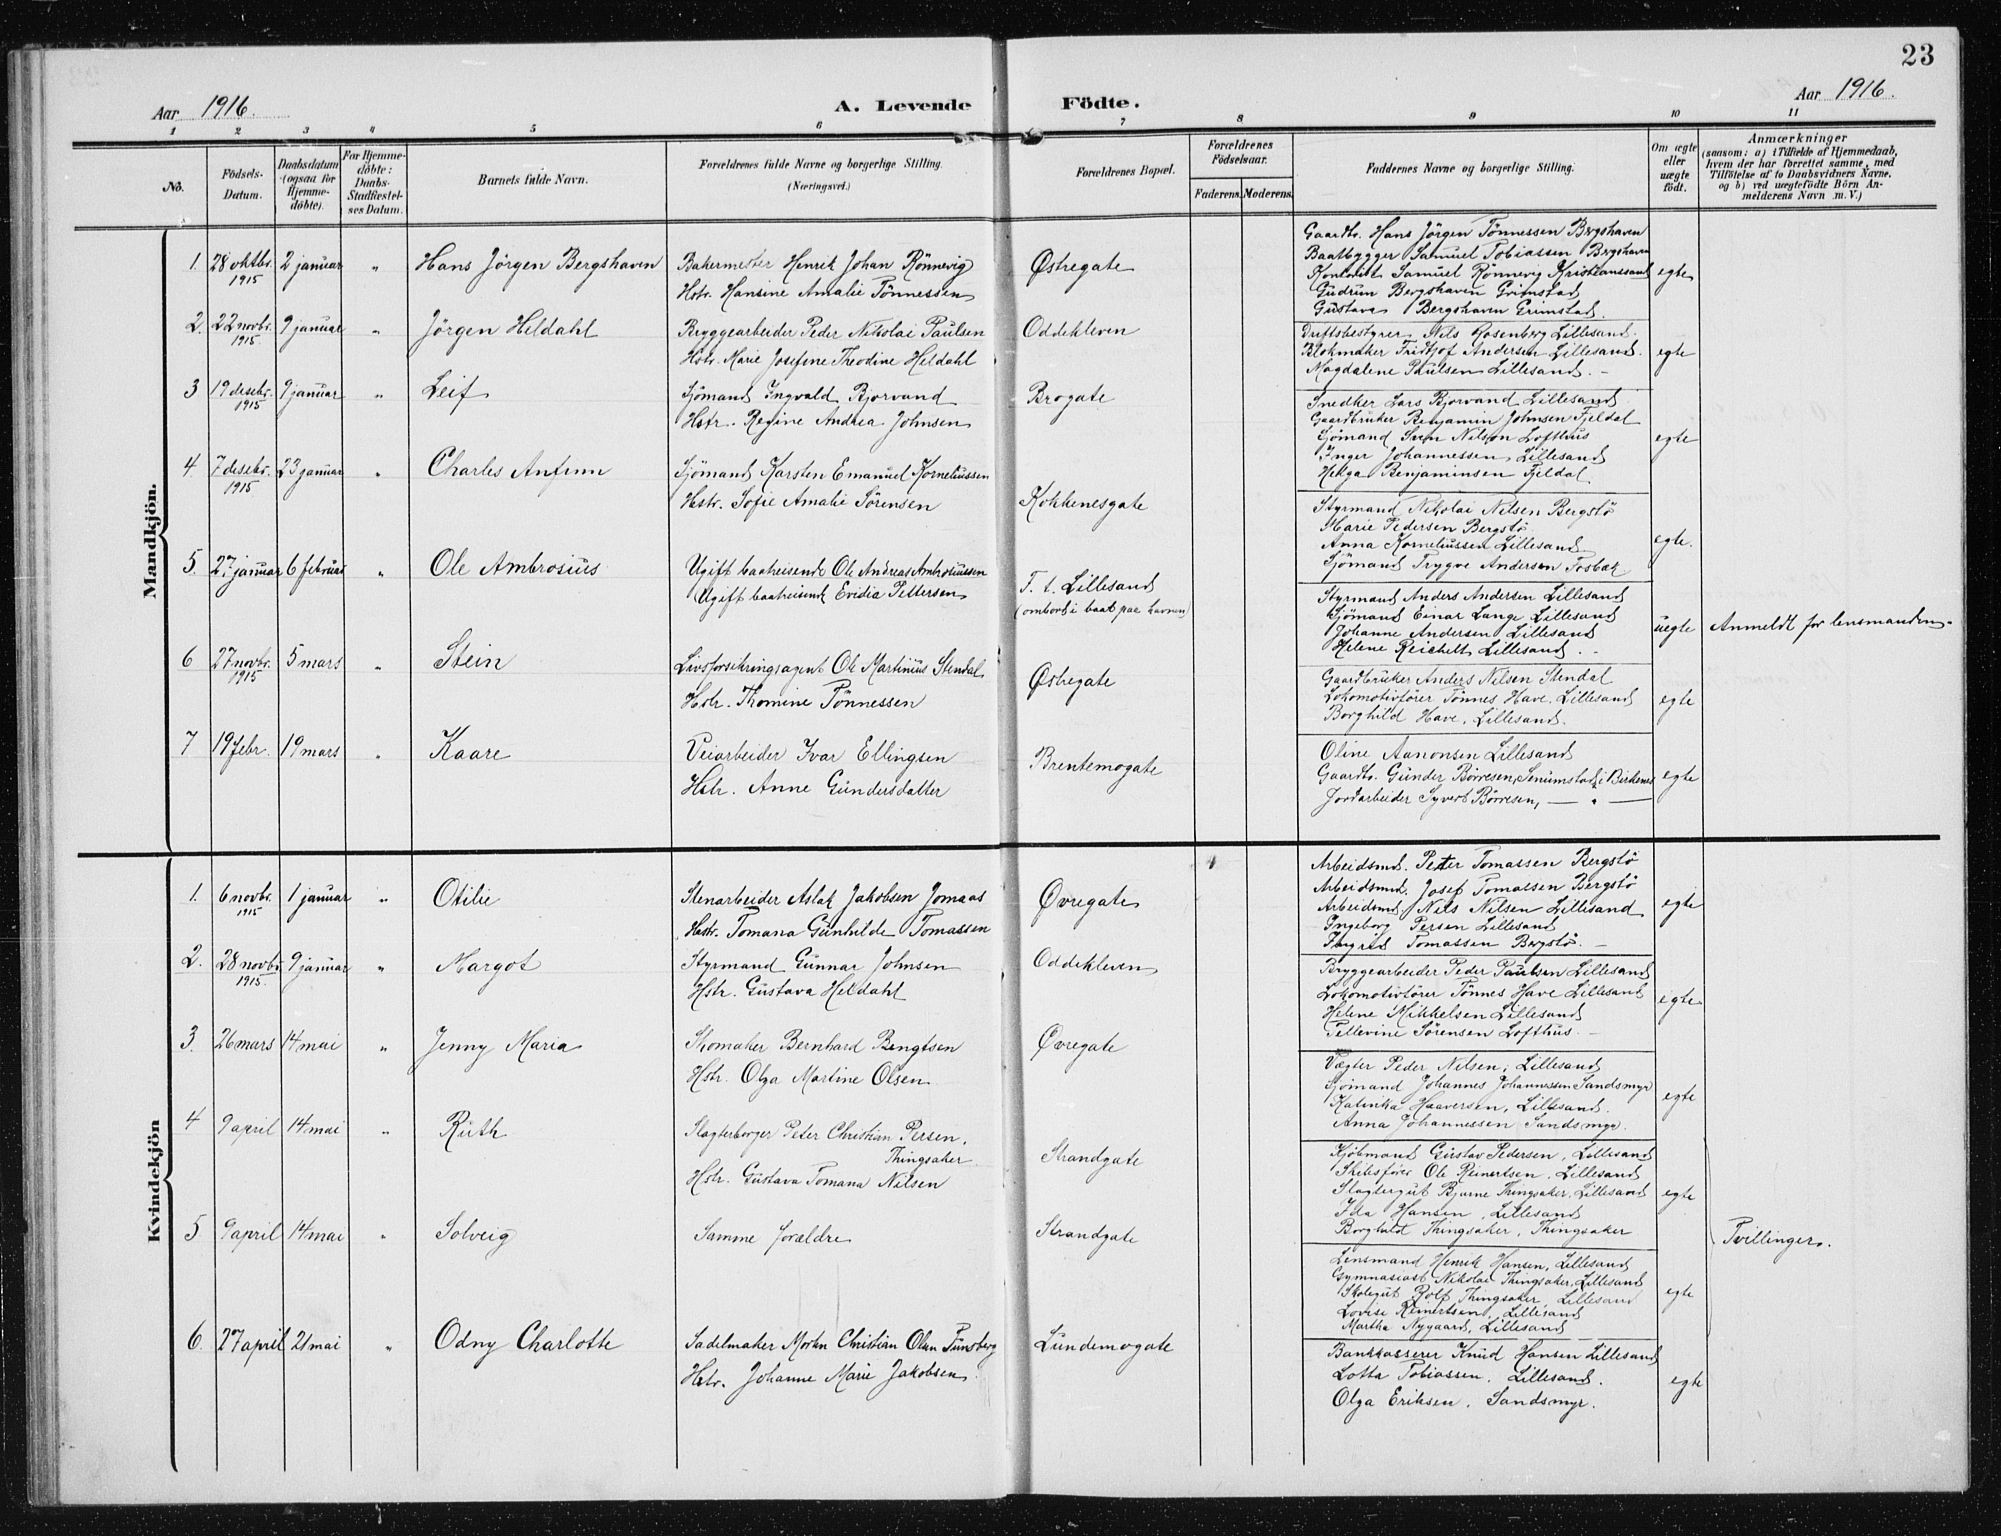 23
Aar 1916.
A. Levende Födte.
Aar 1916.
1 2 3 4 5 6 7 8 9 10 11
No.
Födsels-Datum.
Daabsdatum (ogsaa for Hjemmedöbte).
For Hjemmedöbte: Daabs-Stadfæstelses Datum.
Barnets fulde Navn.
Forældrenes fulde Navne og borgerlige Stilling.
(Næringsvei.)
Forældrenes Bopæl.
Forældrenes Födselsaar.
Faderens. Moderens.
Faddernes Navne og borgerlige Stilling.
Om ægte eller uægte födt.
Anmærkninger
(saasom: a) i Tilfælde af Hjemmedaab,
hvem der har forrettet samme, med
Tilföielse af to Daabsvidners Navne,
og b) ved uægtefödte Börn An-
melderens Navn m. V.)
Mandkjön.
1. 28 oktbr. 1915 2 januar " Hans Jörgen Bergshaven
Bakermester Henrik Johan Rönnevig
Hstr. Hansine Amalie Tönnessen
Østregate
Gaardbr. Hans Jörgen Tönnessen Bergshaven
Baatbygger Samuel Tobiassen Bergshaven
Kontorist Samuel Rönnevig Kristianssand
Gudrun Bergshaven Grimstad
Gustava Bergshaven Grimstad.
egte
2. 22 novbr. 1915 9 januar " Jörgen Heldahl
Bryggearbeider Peder Nikolai Paulsen
Hstr. Marie Josefine Theodine Heldahl
Oddekleven
Driftsbestyrer Nils Rosenberg Lillesand.
Blokmaker Fridtjof Andersen Lillesand.
Magdalene Paulsen Lillesand. -
egte
3 19 desebr. 1915 9 januar " Leif
Sjömand Ingvald Bjorvand
Hstr. Regine Andrea Johnsen
Brogate
Snedker Lars Bjorvand Lillesand
Gaardbruker Benjamin Johnsen Fjeldal
Sjömand Sven Nilson Lofthus
Inger Johannessen Lillesand
Helga Benjaminsen Fjeldal
egte
4 7 desebr. 1915 23 januar " Charles Anfinn
Sjömand Karsten Emanuel Korneliussen
Hstr. Sofie Amalie Sörensen
Kokkenesgate
Styrmand Nikolai Nilsen Bergstö
Marie Pedersen Bergstö
Anna Korneliussen Lillesand
Sjömand Trygve Andersen Fosbæk
egte.
5. 27 januar 6 februar " Ole Ambrosius
Ugift baatreisende Ole Andreas Ambrosiussen
Ugift baatreisende Evidia Pettersen
F. t. Lillesand
(ombord i baat paa havnen)
Styrmand Anders Andersen Lillesand
Sjömand Einar Lange Lillesand
Johanne Andersen Lillesand
Helene Reichelt Lillesand. -
uegte
Anmeldt for lensmanden.
6 27 novbr. 1915 5 mars " Stein
Livsforsikringsagent Ole Martinius Stendal
Hstr. Thomine Tönnessen
Østregate
Gaardbruker Anders Nilsen Stendal
Lokomotivförer Tönnes Have, Lillesand
Borghild Have, Lillesand.
egte
7 19 febr. 19 mars " Kaare
Veiarbeider Ivar Ellingsen
Hstr. Anne Gundersdatter
Brentemogate
Oline Aanonsen Lillesand
Gaardbr. Gunder Börresen, Senumstad i Birkenes
Jordarbeider Syvert Börresen, — " —
egte
Kvindekjön
1. 6 novbr. 1915 1 januar " Otilie
Stenarbeider Aslak Jakobsen Jomaas
Hstr. Tomana Gunhilde Tomassen
Øvregate
Arbeidsmd. Peter Tomassen Bergstö
Arbeidsmd. Josef Tomassen Bergstö
Arbeidsmd. Nils Nilsen Lillesand
Ingeborg Persen Lillesand
Ingrid Tomassen Bergstö. -
egte
2. 28 novbr. 1915. 9 januar " Margot
Styrmand Gunnar Johnsen
Hstr. Gustava Heldahl
Oddekleven
Bryggearbeider Peder Paulsen Lillesand
Lokomotivförer Tönnes Have Lillesand
Helene Mikkelsen Lillesand
Pellevine Sörensen Lofthus. -
egte
3. 26 mars 14 mai " Jenny Maria
Skomaker Bernhard Bengtsen
Hstr. Olga Martine Olsen
Øvregate
Vægter Peder Nilsen, Lillesand
Sjömand Johannes Johannessen Sandsmyr
Kalinka Haaversen, Lillesand.
Anna Johannessen Sandsmyr.
egte
4 9 april 14 mai " Ruth
Slagterborger Peter Christian Persen,
Thingsaker
Hstr. Gustava Tomana Nilsen
Strandgate
Kjöbmand Gustav Pedersen, Lillesand
Skibsförer Ole Reinertsen, Lillesand
Slagtergut Bjarne Thingsaker, Lillesand
Ida Hansen, Lillesand
Borghild Thingsaker, Thingsaker
egte
5 9 april 14 mai " Solveig
Samme forældre
Strandgate
Lensmand Henrik Hansen, Lillesand
Gymnasiast Nikolai Thingsaker, Lillesand
Skolegut Rolf Thingsaker, Lillesand
Lovise Reinertsen, Lillesand
Martha Nygaard, Lillesand
egte
Tvillinger.
6. 27 april 21 mai " Odny Charlotte
Sadelmaker Morten Christian Olsen Tunsberg
Hstr. Johanne Marie Jakobsen
Lundemogate
Bankkasserer Knud Hansen Lillesand
Lotta Tobiassen, Lillesand.
Olga Eriksen, Sandsmyr.
egte